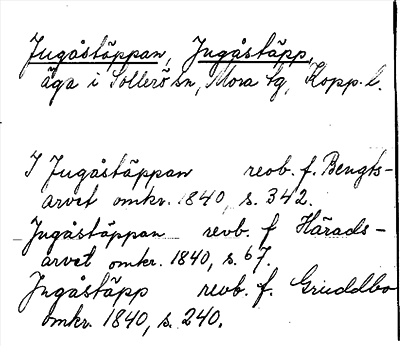 Jugåstäppan, Jugåstäpp,
äga i Sollerö sn, Mora tg, Kopp. l.
I Jugåstäppan reob. f. Bengts-
arvet omkr. 1840, s. 342.
Jugåstäppan reob. f Härads-
arvet omkr. 1840, s. 67.
Jugåstäpp reob. f. Gruddbo
omkr. 1840, s. 240.